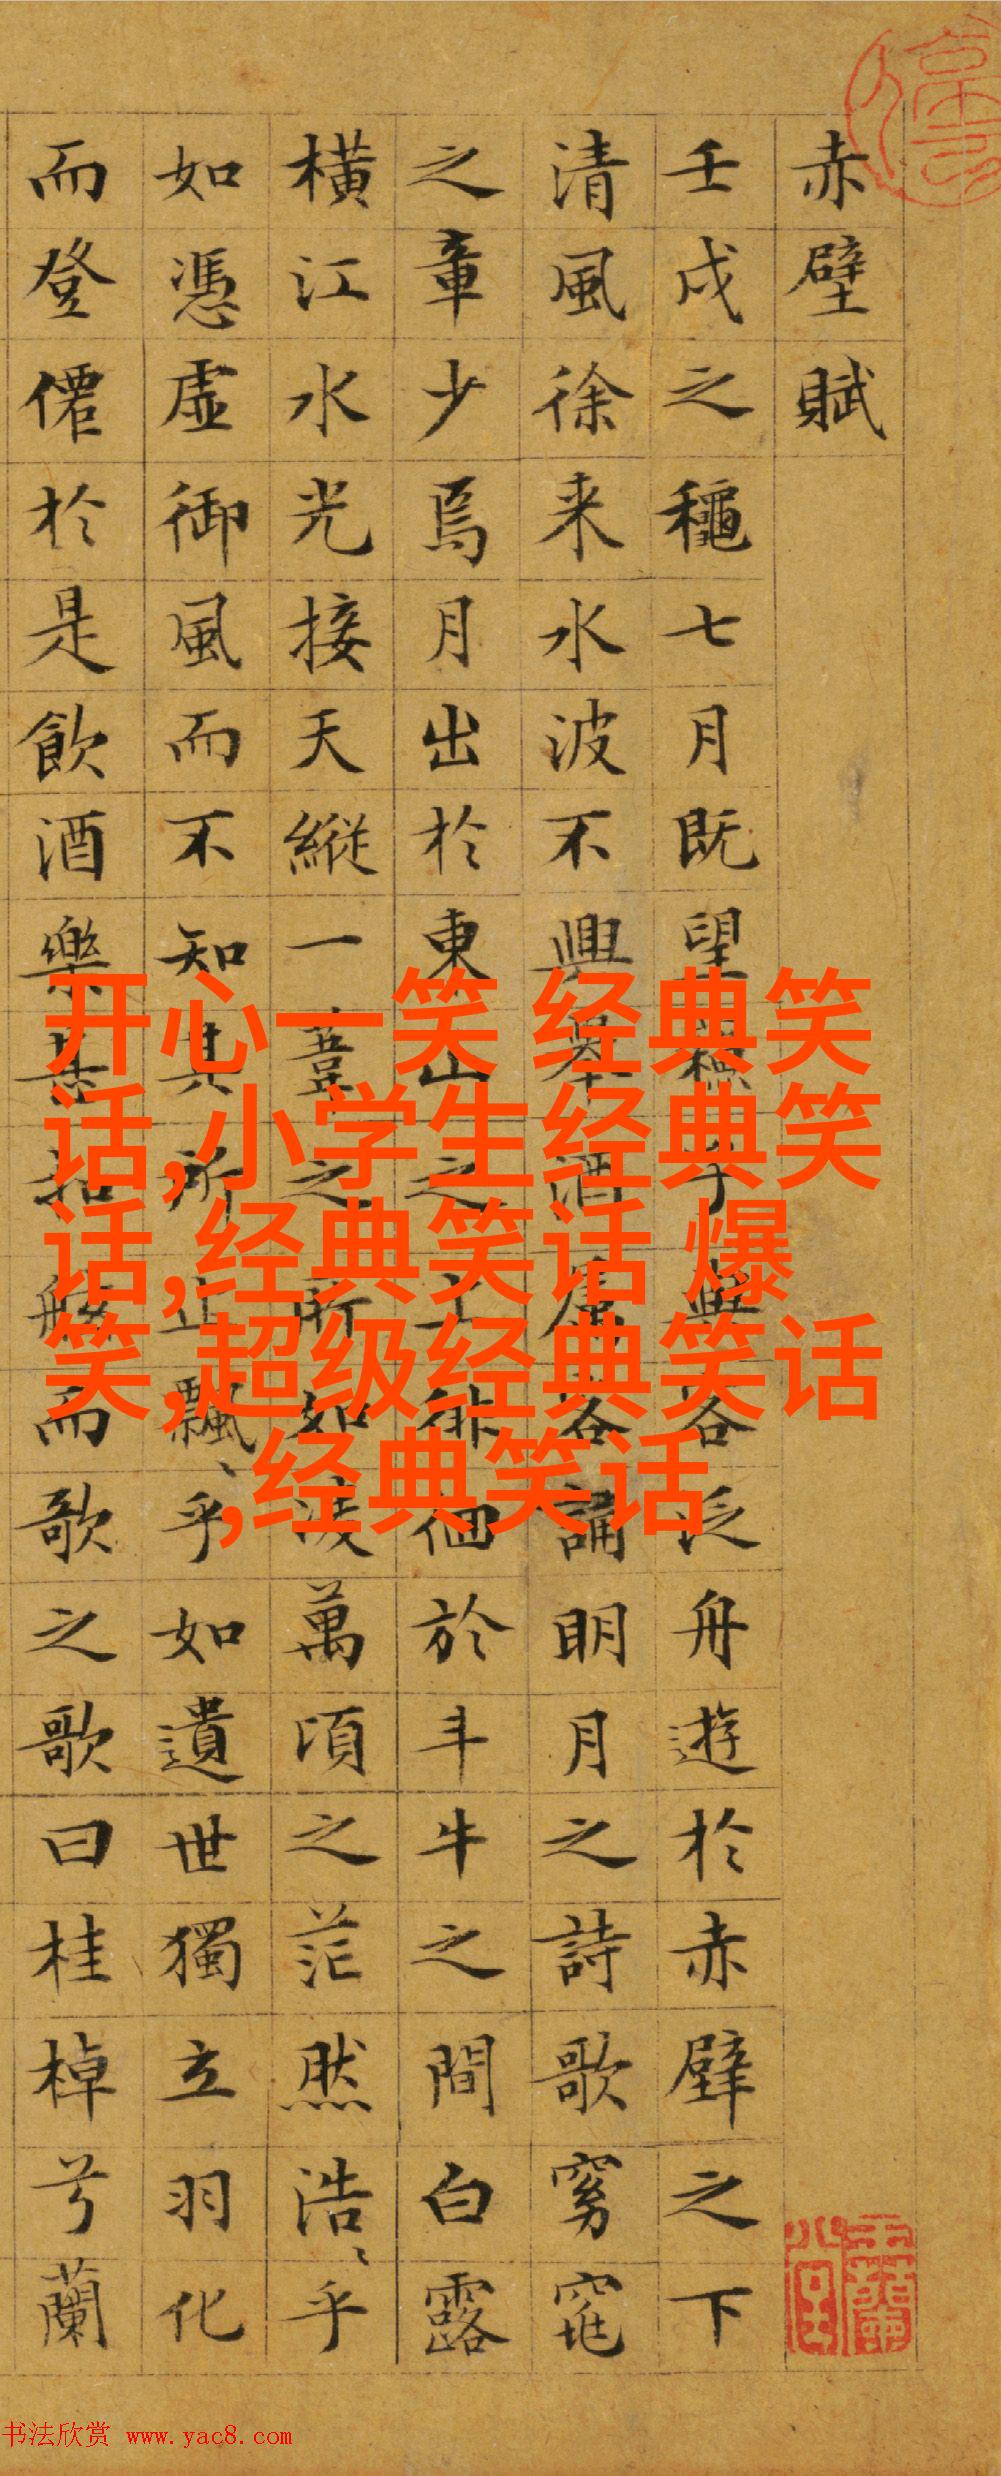 赤壁賦
壬戌之龝七月既望蘇子與客泛舟遊於赤壁之下
清風徐来水波不興舉酒屬客誦明月之詩歌窈窕
之章少焉月出於東山之上徘徊於斗牛之間白露
橫江水光接天縱一葦之所如淩萬頃之茫然浩〻乎
如憑虛御風而不知其所止飄〻乎如遺世獨立羽化
而登僊於是飲酒樂甚扣舷而歌之歌曰桂棹兮蘭
开心一笑 经典笑
话,小学生经典笑
话,经典笑话 爆
笑,超级经典笑话
,经典笑话
书法欣赏 www.yac8.com